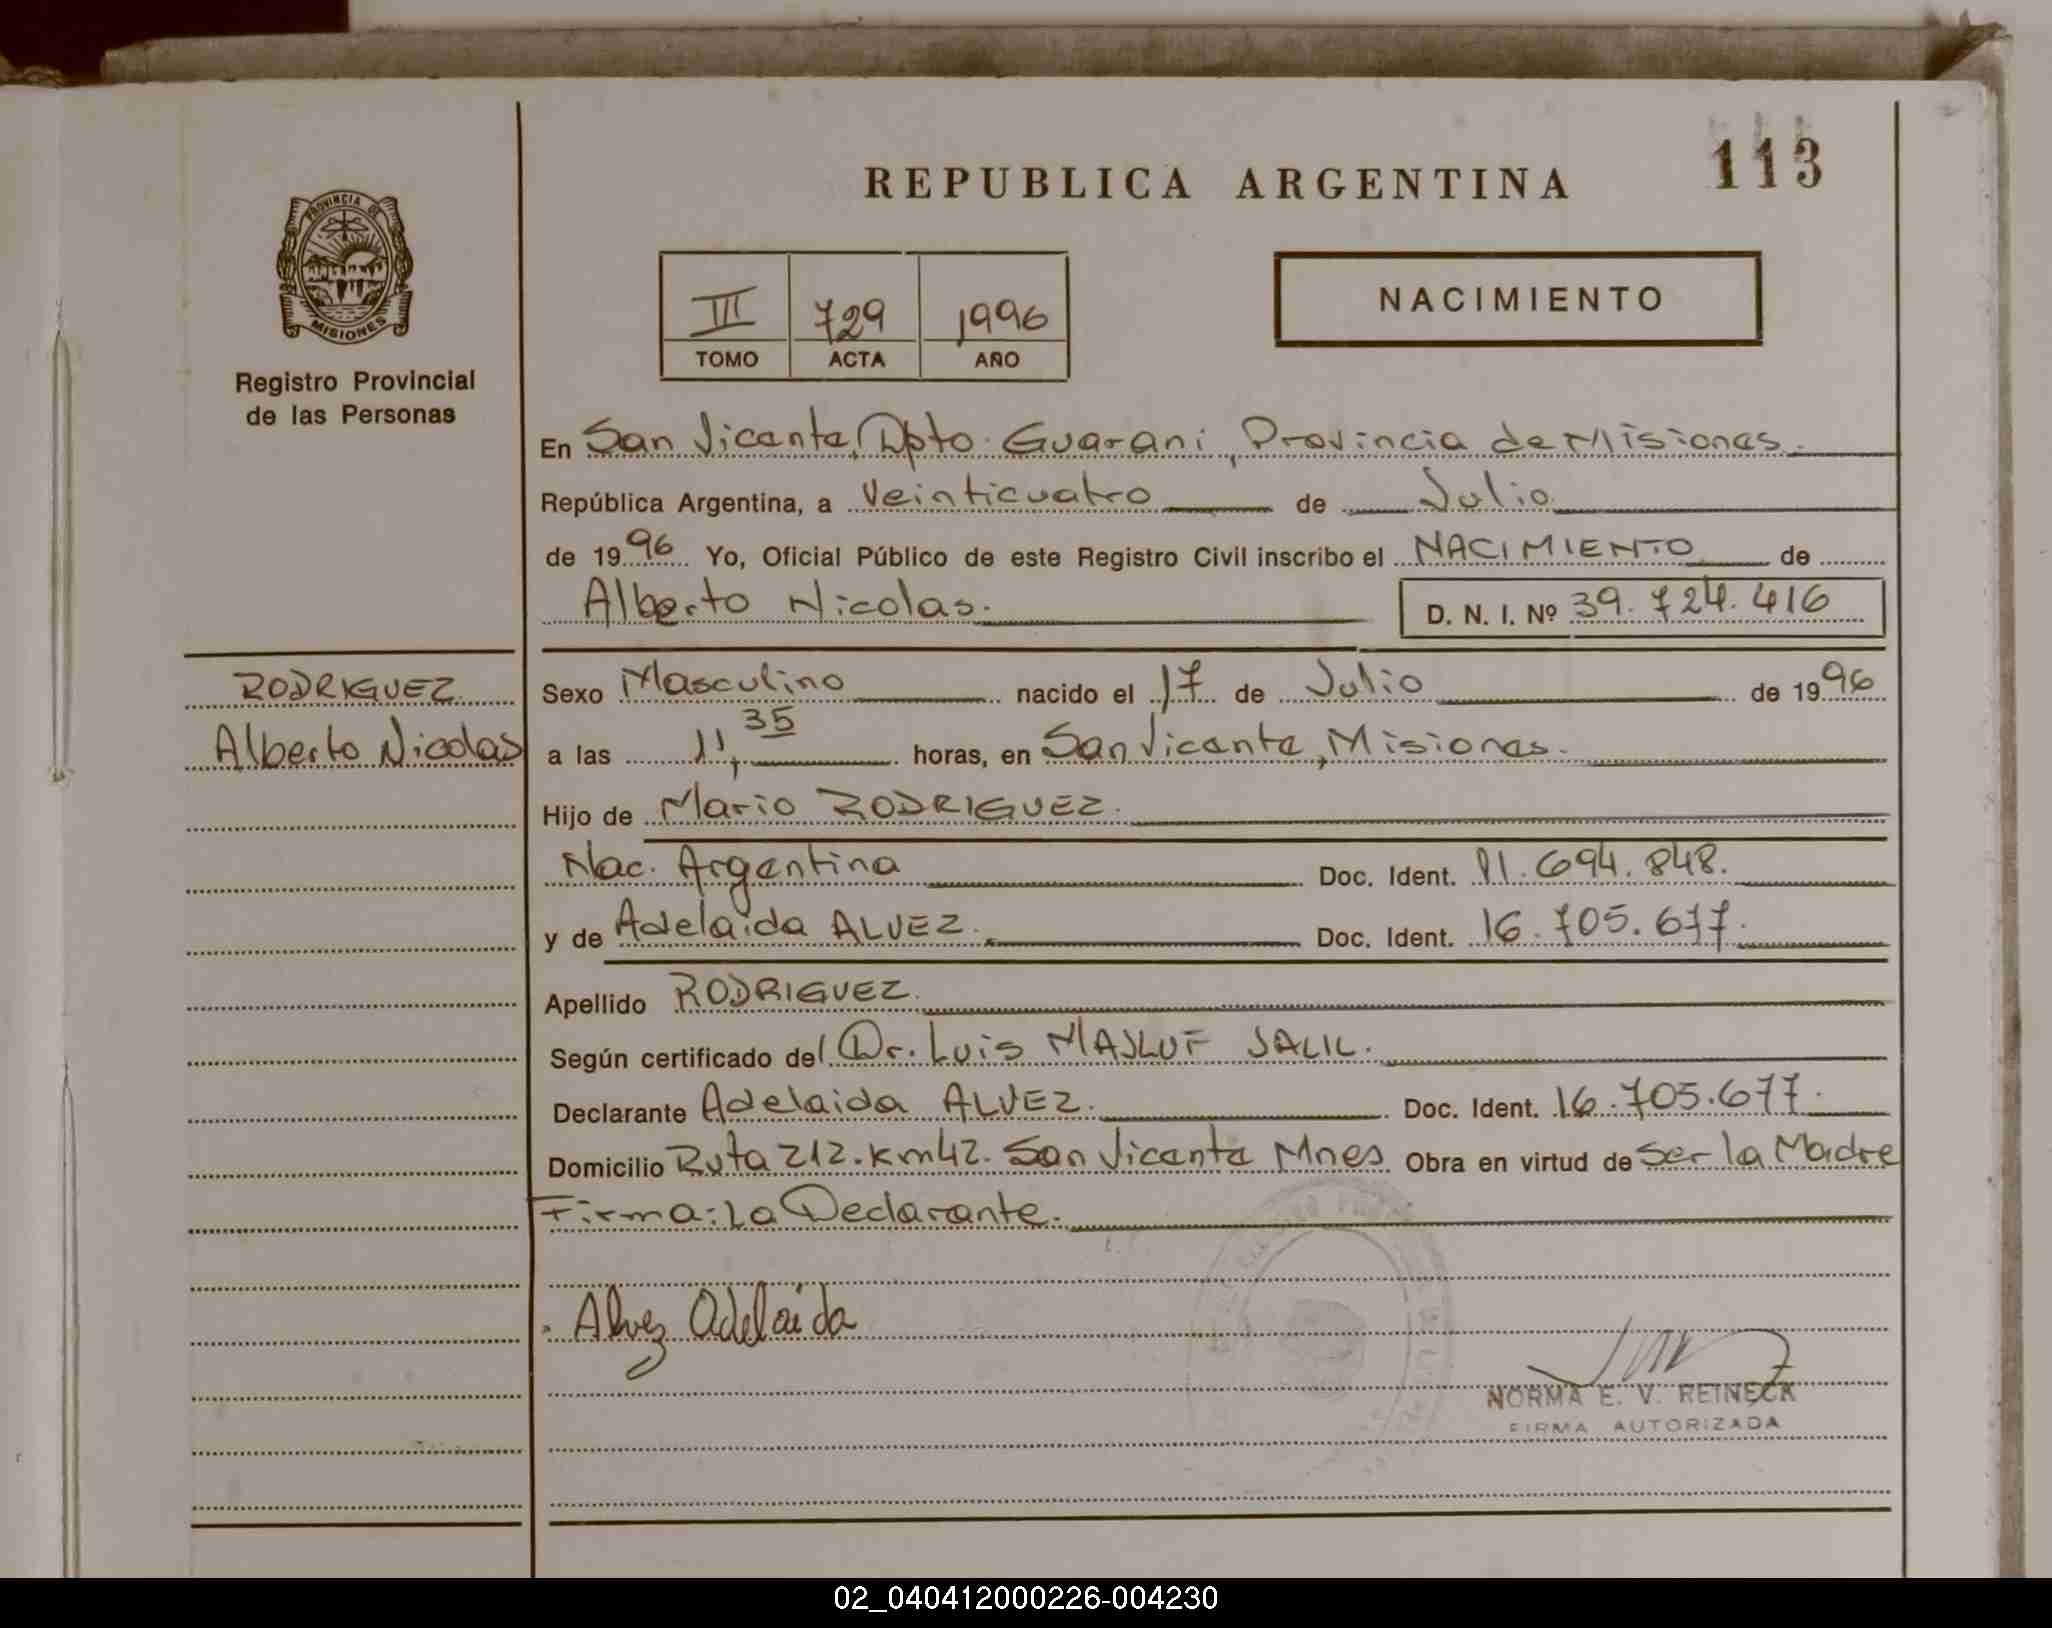 113
REPUBLICA ARGENTINA
PROVINCIA DE
MISIONES
Registro Provincial
de las Personas
III 729 1996
TOMO ACTA AÑO
NACIMIENTO
En San Vicente, Dpto. Guarani, Provincia de Misiones.
República Argentina, a Veinticuatro de Julio
de 1996 Yo, Oficial Público de este Registro Civil inscribo el NACIMIENTO de
Alberto Nicolas. D. N. I. Nº 39.724.416
RODRIGUEZ
Alberto Nicolas
Sexo Masculino nacido el 17 de Julio de 1996
a las 11,35 horas, en San Vicente, Misiones.
Hijo de Mario RODRIGUEZ.
Nac. Argentina Doc. Ident. 11.694.848.
y de Adelaida ALVEZ. Doc. Ident. 16.705.677.
Apellido RODRIGUEZ.
Según certificado del Dr. Luis MAJLUF JALIL.
Declarante Adelaida ALVEZ. Doc. Ident. 16.705.677.
Domicilio Ruta 212. Km 42. San Vicente Mnes Obra en virtud de Ser la Madre
Firma: La Declarante.
Alvez Adelaida
NORMA E. V. REINECK
FIRMA AUTORIZADA
02_040412000226-004230